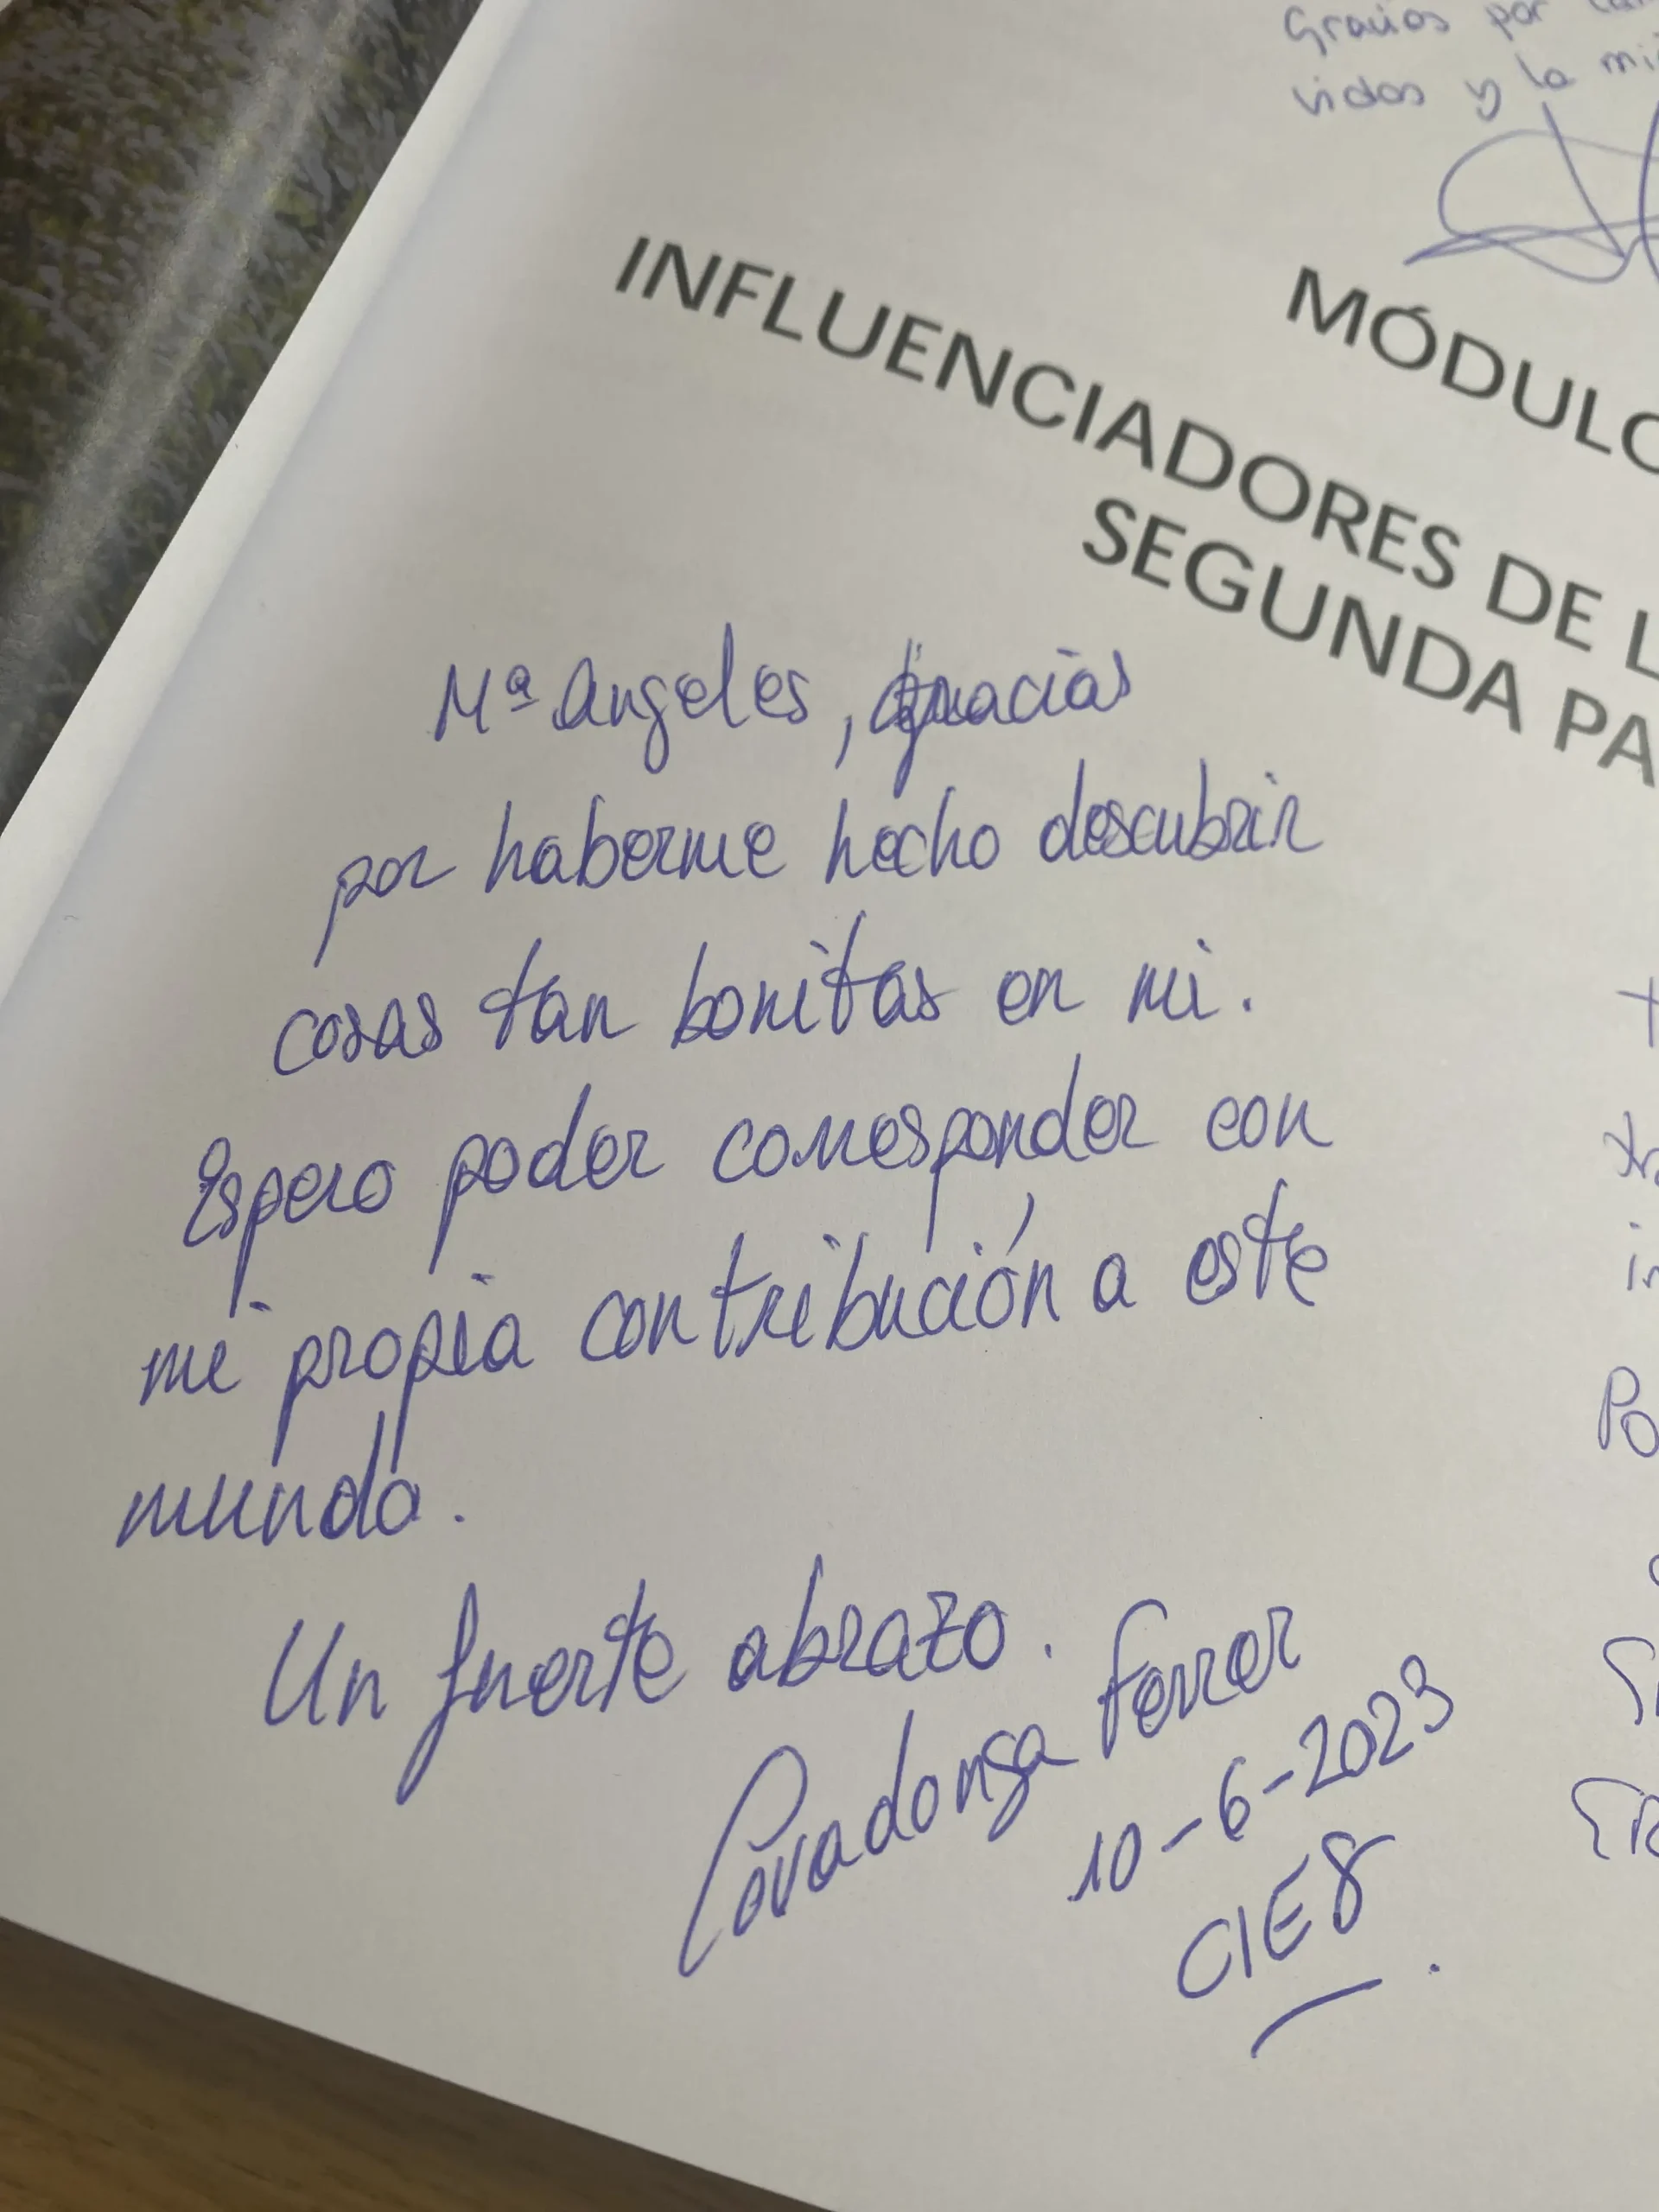 Gracias por
vidas y la mi
MÓDULO
INFLUENCIADORES DE L
SEGUNDA PA
Mª Angeles, gracias
por haberme hecho descubrir
cosas tan bonitas en mi.
Espero poder corresponder con
mi propia contribución a este
mundo.
Un fuerte abrazo.
Covadonga Ferrer
10-6-2023
CIE8
Po